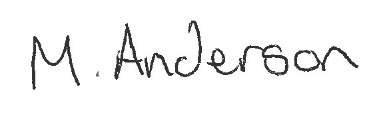 M. Anderson